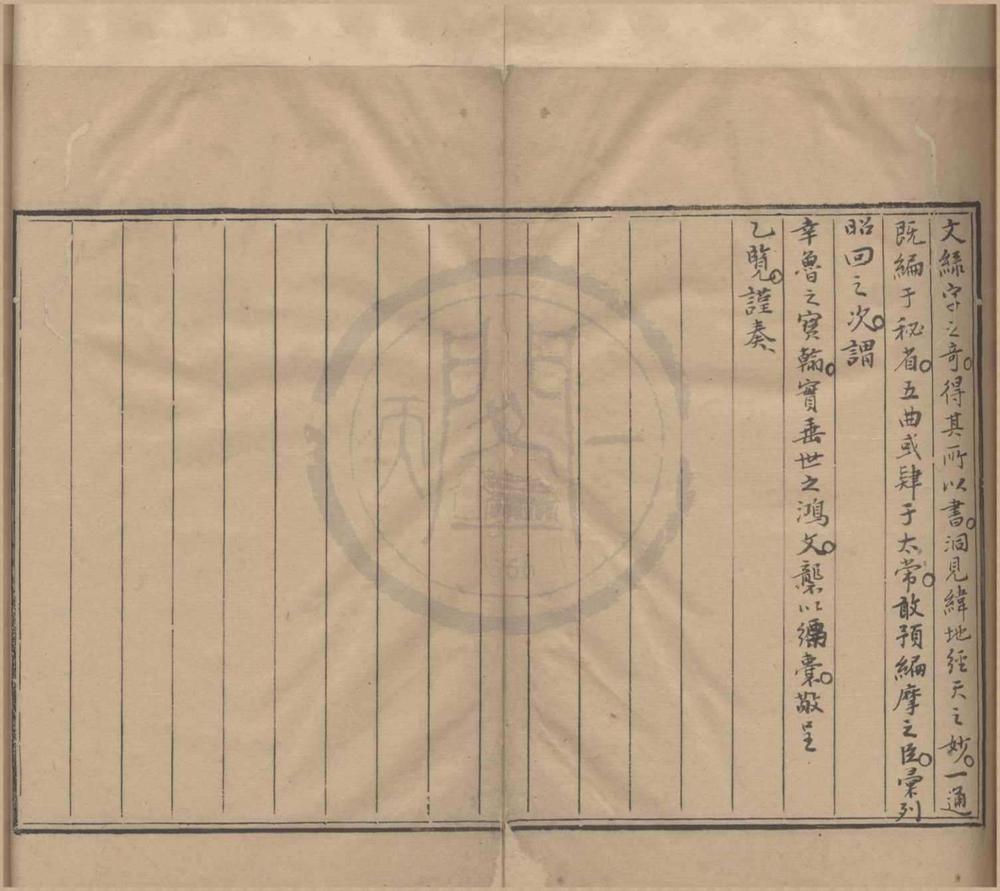 文綠字之奇得其所以書洞見緯地經天之妙一通
既編于秘省五曲或肄于太常敢預編摩之臣彙列
昭回之次謂
幸魯之寳翰實垂世之鴻文襲以縹囊敬呈
乙覽謹奏
天
一
閣